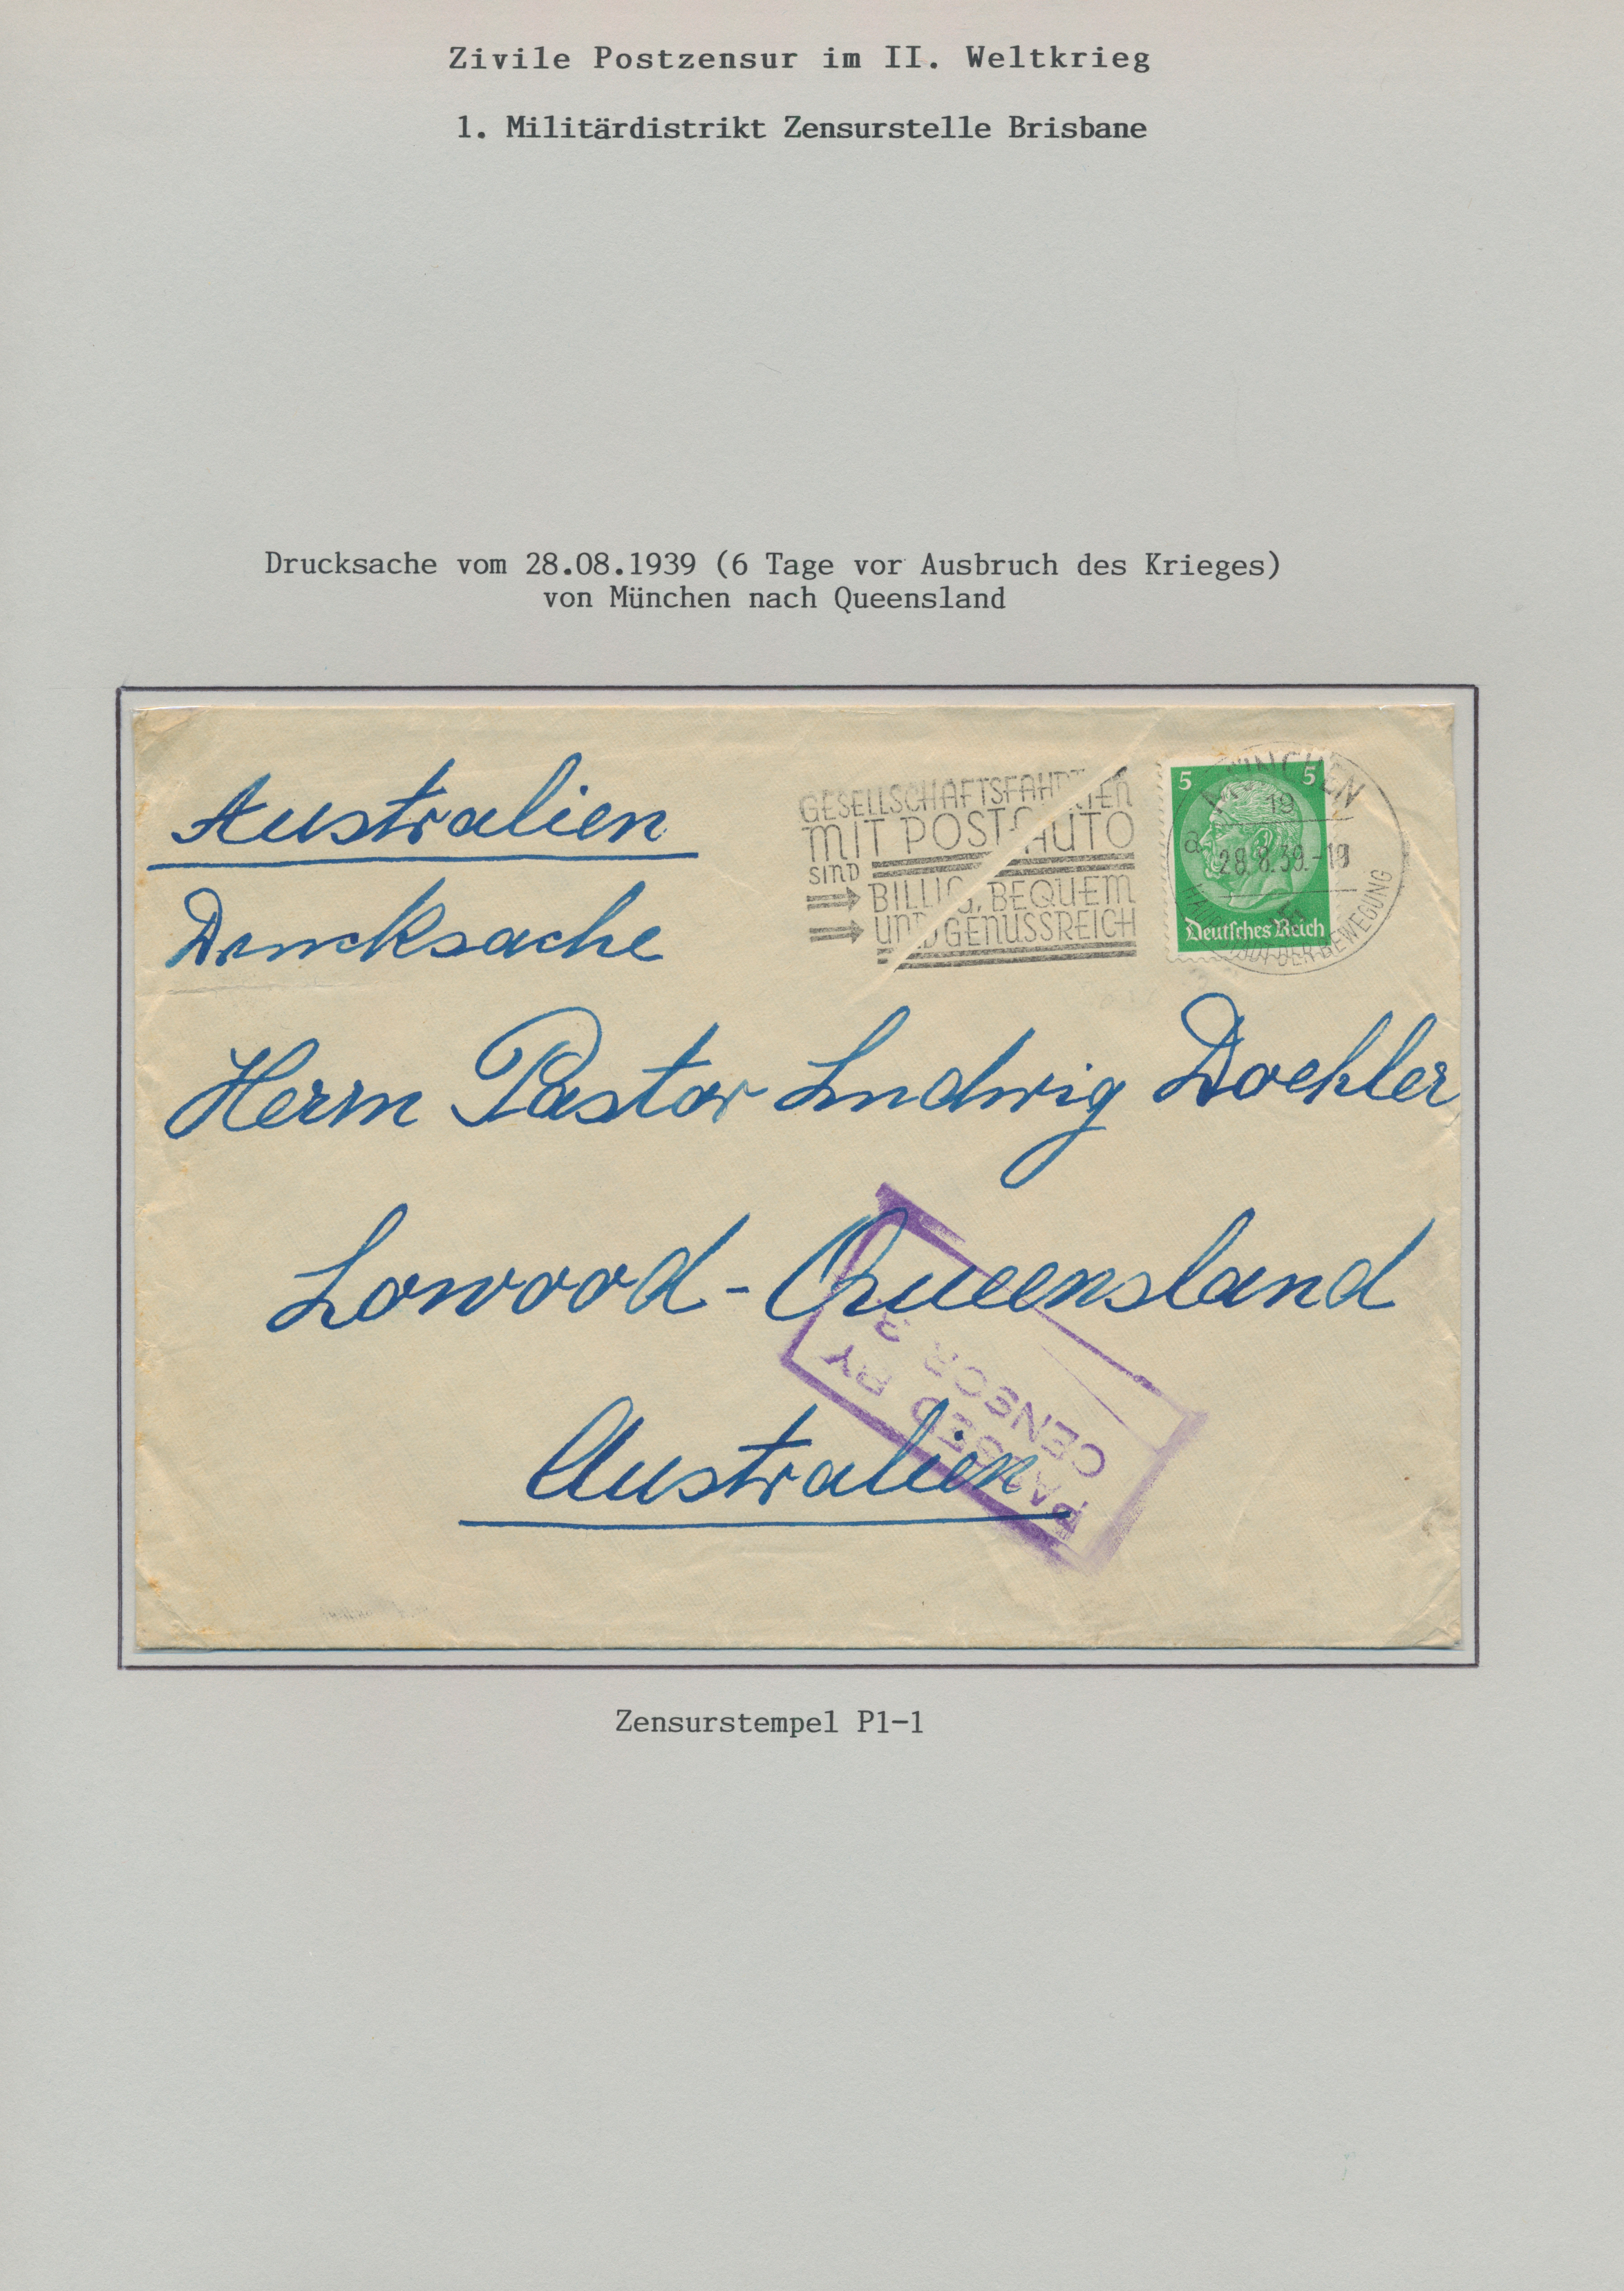 Zivile Postzensur im II. Weltkrieg
1. Militärdistrikt Zensurstelle Brisbane
Drucksache vom 28.08.1939 (6 Tage vor Ausbruch des Krieges)
von München nach Queensland
Australien
Drucksache
GESELLSCHAFTSFAHRTEN
MIT POSTAUTO
SIND
BILLIG, BEQUEM
UND GENUSSREICH
5 5
Deutsches Reich
MÜNCHEN
19
a
28.8.39.-19
HAUPTSTADT DER BEWEGUNG
Herrn Pastor Ludwig Doehler
Lowood - Queensland
Australien
PASSED BY
CENSOR 3
Zensurstempel P1-1